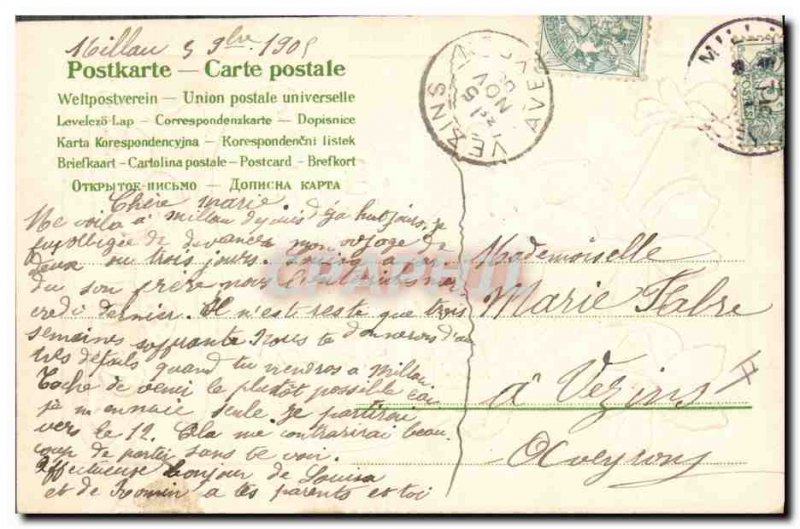 Millau 5 9bre 1905
Postkarte — Carte postale
Weltpostverein — Union postale universelle
Levelező-Lap — Correspondenzkarte — Dopisnice
Karta Korespondencyjna — Korespondenční listek
Briefkaart - Cartolina postale - Postcard - Brefkort
Открытое письмо — Дописна карта
Chère Marie
Me voila à Millau depuis déja huit jours, je
fus obligée de devancer mon voyage de
deux ou trois jours.
du son frère nous l'enterrions mer
credi dernier. Il n'est resté que trois
semaines souffrante nous te donnerons d'au
tres détails quand tu viendras à Millau
Tache de venir le plutôt possible car
je m'ennuie seule je partirai
vers le 12. Cela me contrarirai beau
coup de partir sans te voir.
Affectueuse bonjour de Louisa
et de Romin a tes parents et toi
Mademoiselle
Marie Fabre
à Vezins
Aveyron
VEZINS AVEYRON
5 NOV 05
MILL
POSTES
CPAPHIL